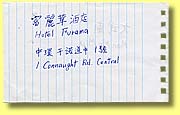 富麗華酒店
Hotel Furama
中環干諾道中1號
1 Connaught Rd. Central